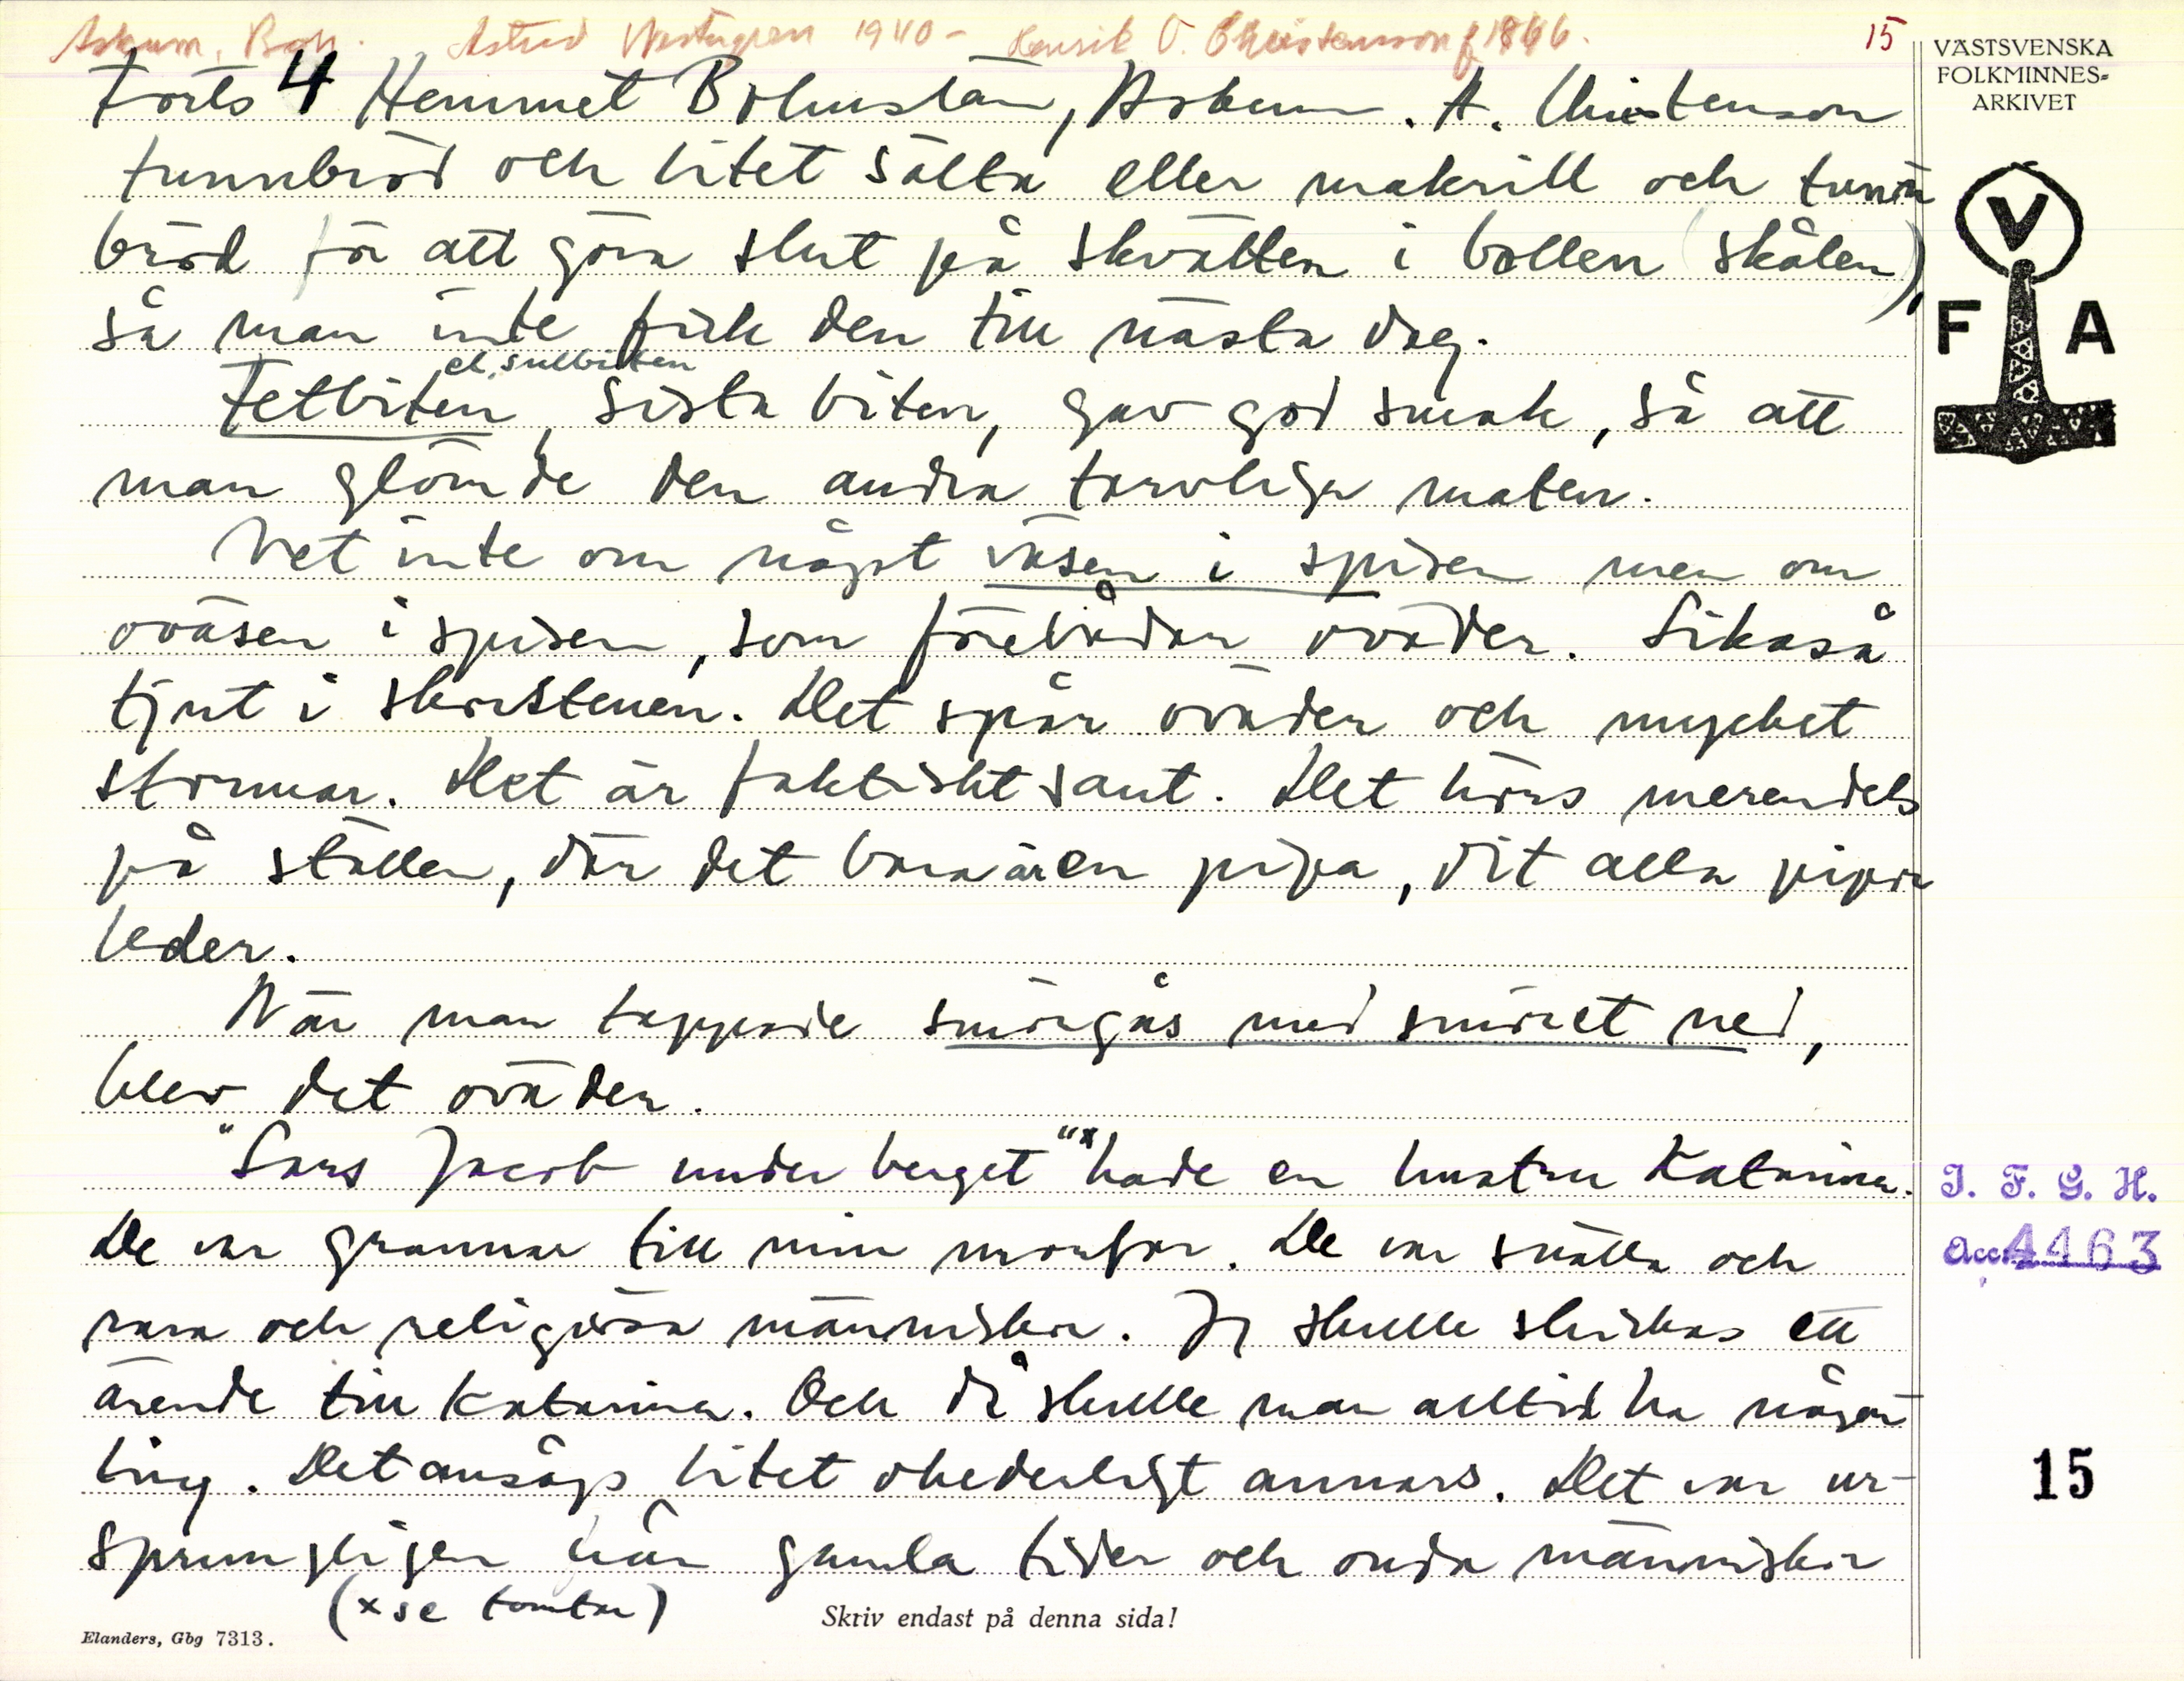 Askum, Boh. Astrid Westergren 1940- Henrik O. Christenson f 1866. 15
VÄSTSVENSKA
FOLKMINNES-
ARKIVET
Forts 4 Hemmet Bohuslän, Askum. A. Christenson
tunnbröd och litet sälta eller makrill och tunn
bröd för att göra slut på skvätten i bollen (skålen),
så man inte fick den till nästa dag.
el. sulbiten
Fetbiten, sista biten, gav god smak, så att
man glömde den andra tarvliga maten.
Vet inte om något väsen i spisen men om
oväsen i spisen, som förebådar oväder. Likaså
tjut i skorstenen. Det spår oväder och mycket
stormar. Det är faktiskt sant. Det hörs merendels
på ställen, där det bara är en pipa, dit alla pipor
leder.
När man tappade smörgås med smöret ned,
blev det oväder.
"Lars Jacob under berget"x hade en hustru Katarina.
De var grannar till min morfar. De var snälla och
rara och religiösa människor. Jg skulle skickas ett
ärende till Katarina. Och då skulle man alltid ha någon
ting. Det ansågs litet ohederligt annars. Det var ur-
sprungligen från gamla tider och onda människor
(x se tomtar)
Skriv endast på denna sida!
Elanders, Gbg 7313.
V
F A
I. F. G. H.
Acc. 4463
15